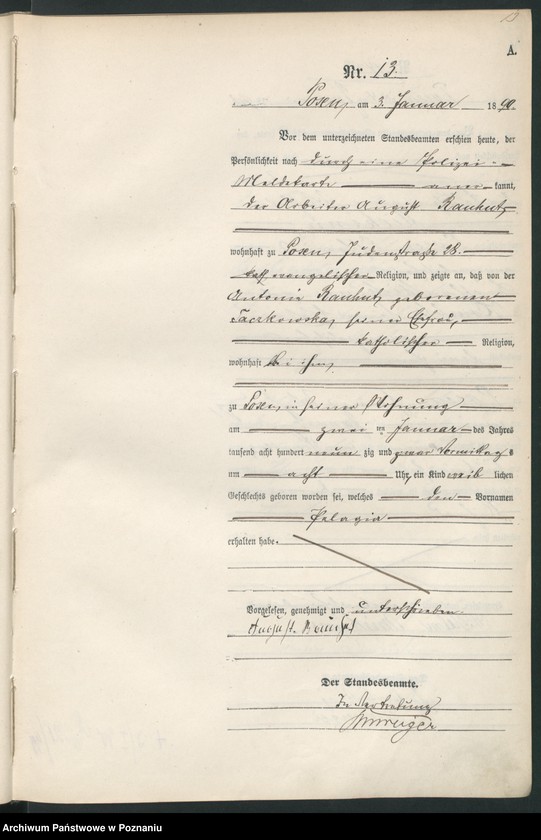 A.
Nr. 13.
Posen, am 3. Januar 1890.
Vor dem unterzeichneten Standesbeamten erschien heute, der
Persönlichkeit nach durch eine Polizei-
Meldekarte aner kannt,
der Arbeiter August Rauhut,
wohnhaft zu Posen, Judenstraße 28.
evangelischer Religion, und zeigte an, daß von der
Antonie Rauhut, geborenen
Taczkowska, seiner Ehefrau,
katholischer Religion,
wohnhaft bei ihm,
zu Posen, in seiner Wohnung
am zwei ten Januar des Jahres
tausend acht hundert neun zig und zwar Vormittags
um acht Uhr, ein Kind weib lichen
Geschlechts geboren worden sei, welches den Vornamen
Pelagia
erhalten habe.
Vorgelesen, genehmigt und unterschrieben
August Rauhut
Der Standesbeamte.
In Vertretung
Archiwum Państwowe w Poznaniu